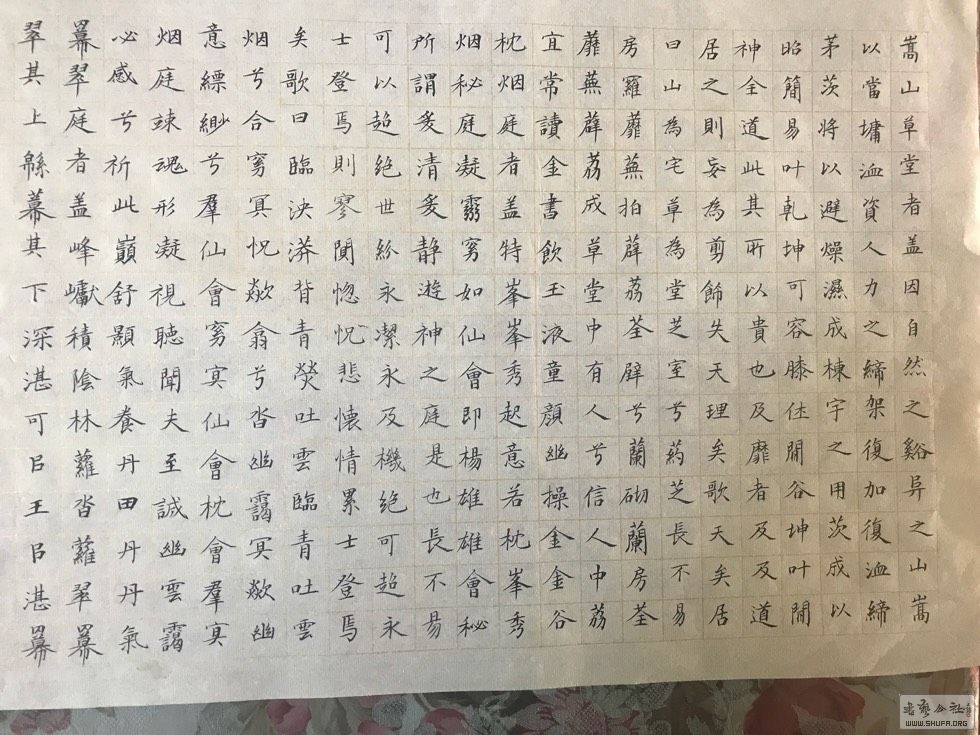 嵩山草堂者盖因自然之谿阜之山嵩
以當墉洫資人力之締架復加復洫締
茅茨將以避燥濕成棟宇之用茨成以
昭簡易叶乾坤可容膝休閒谷坤叶閒
神全道此其所以貴也及靡者及及道
居之則妄為剪飾失天理矣歌天矣居
曰山為宅草為堂芝室兮葯芝長不易
房羅蘼蕪拍薜荔荃壁兮蘭砌蘭房荃
蘼蕪薜荔成草堂中有人兮信人中荔
宜常讀金書飲玉液童顏幽操金金谷
枕烟庭者盖特峯峯秀起意若枕峯秀
烟秘庭凝靈窮如仙會即楊雄雄會秘
所謂爰清爰静遊神之庭是也長不易
可以超絶世紛永潔永及機絶可超永
士登焉則寥闃惚怳悲懷情累士登焉
矣歌曰臨泱漭背青熒吐雲臨青吐雲
烟兮合窈冥怳欻翕兮沓幽靄冥欻幽
意縹緲兮羣仙會窈冥仙會枕會羣冥
烟庭竦魂形凝視聽聞夫至誠幽雲靄
必感兮祈此巔舒顥氣養丹田丹丹氣
羃翠庭者盖峰巘積陰林蘿沓蘿翠羃
翠其上緜幕其下深湛可㠯王㠯湛羃
WWW.SHUFA.ORG